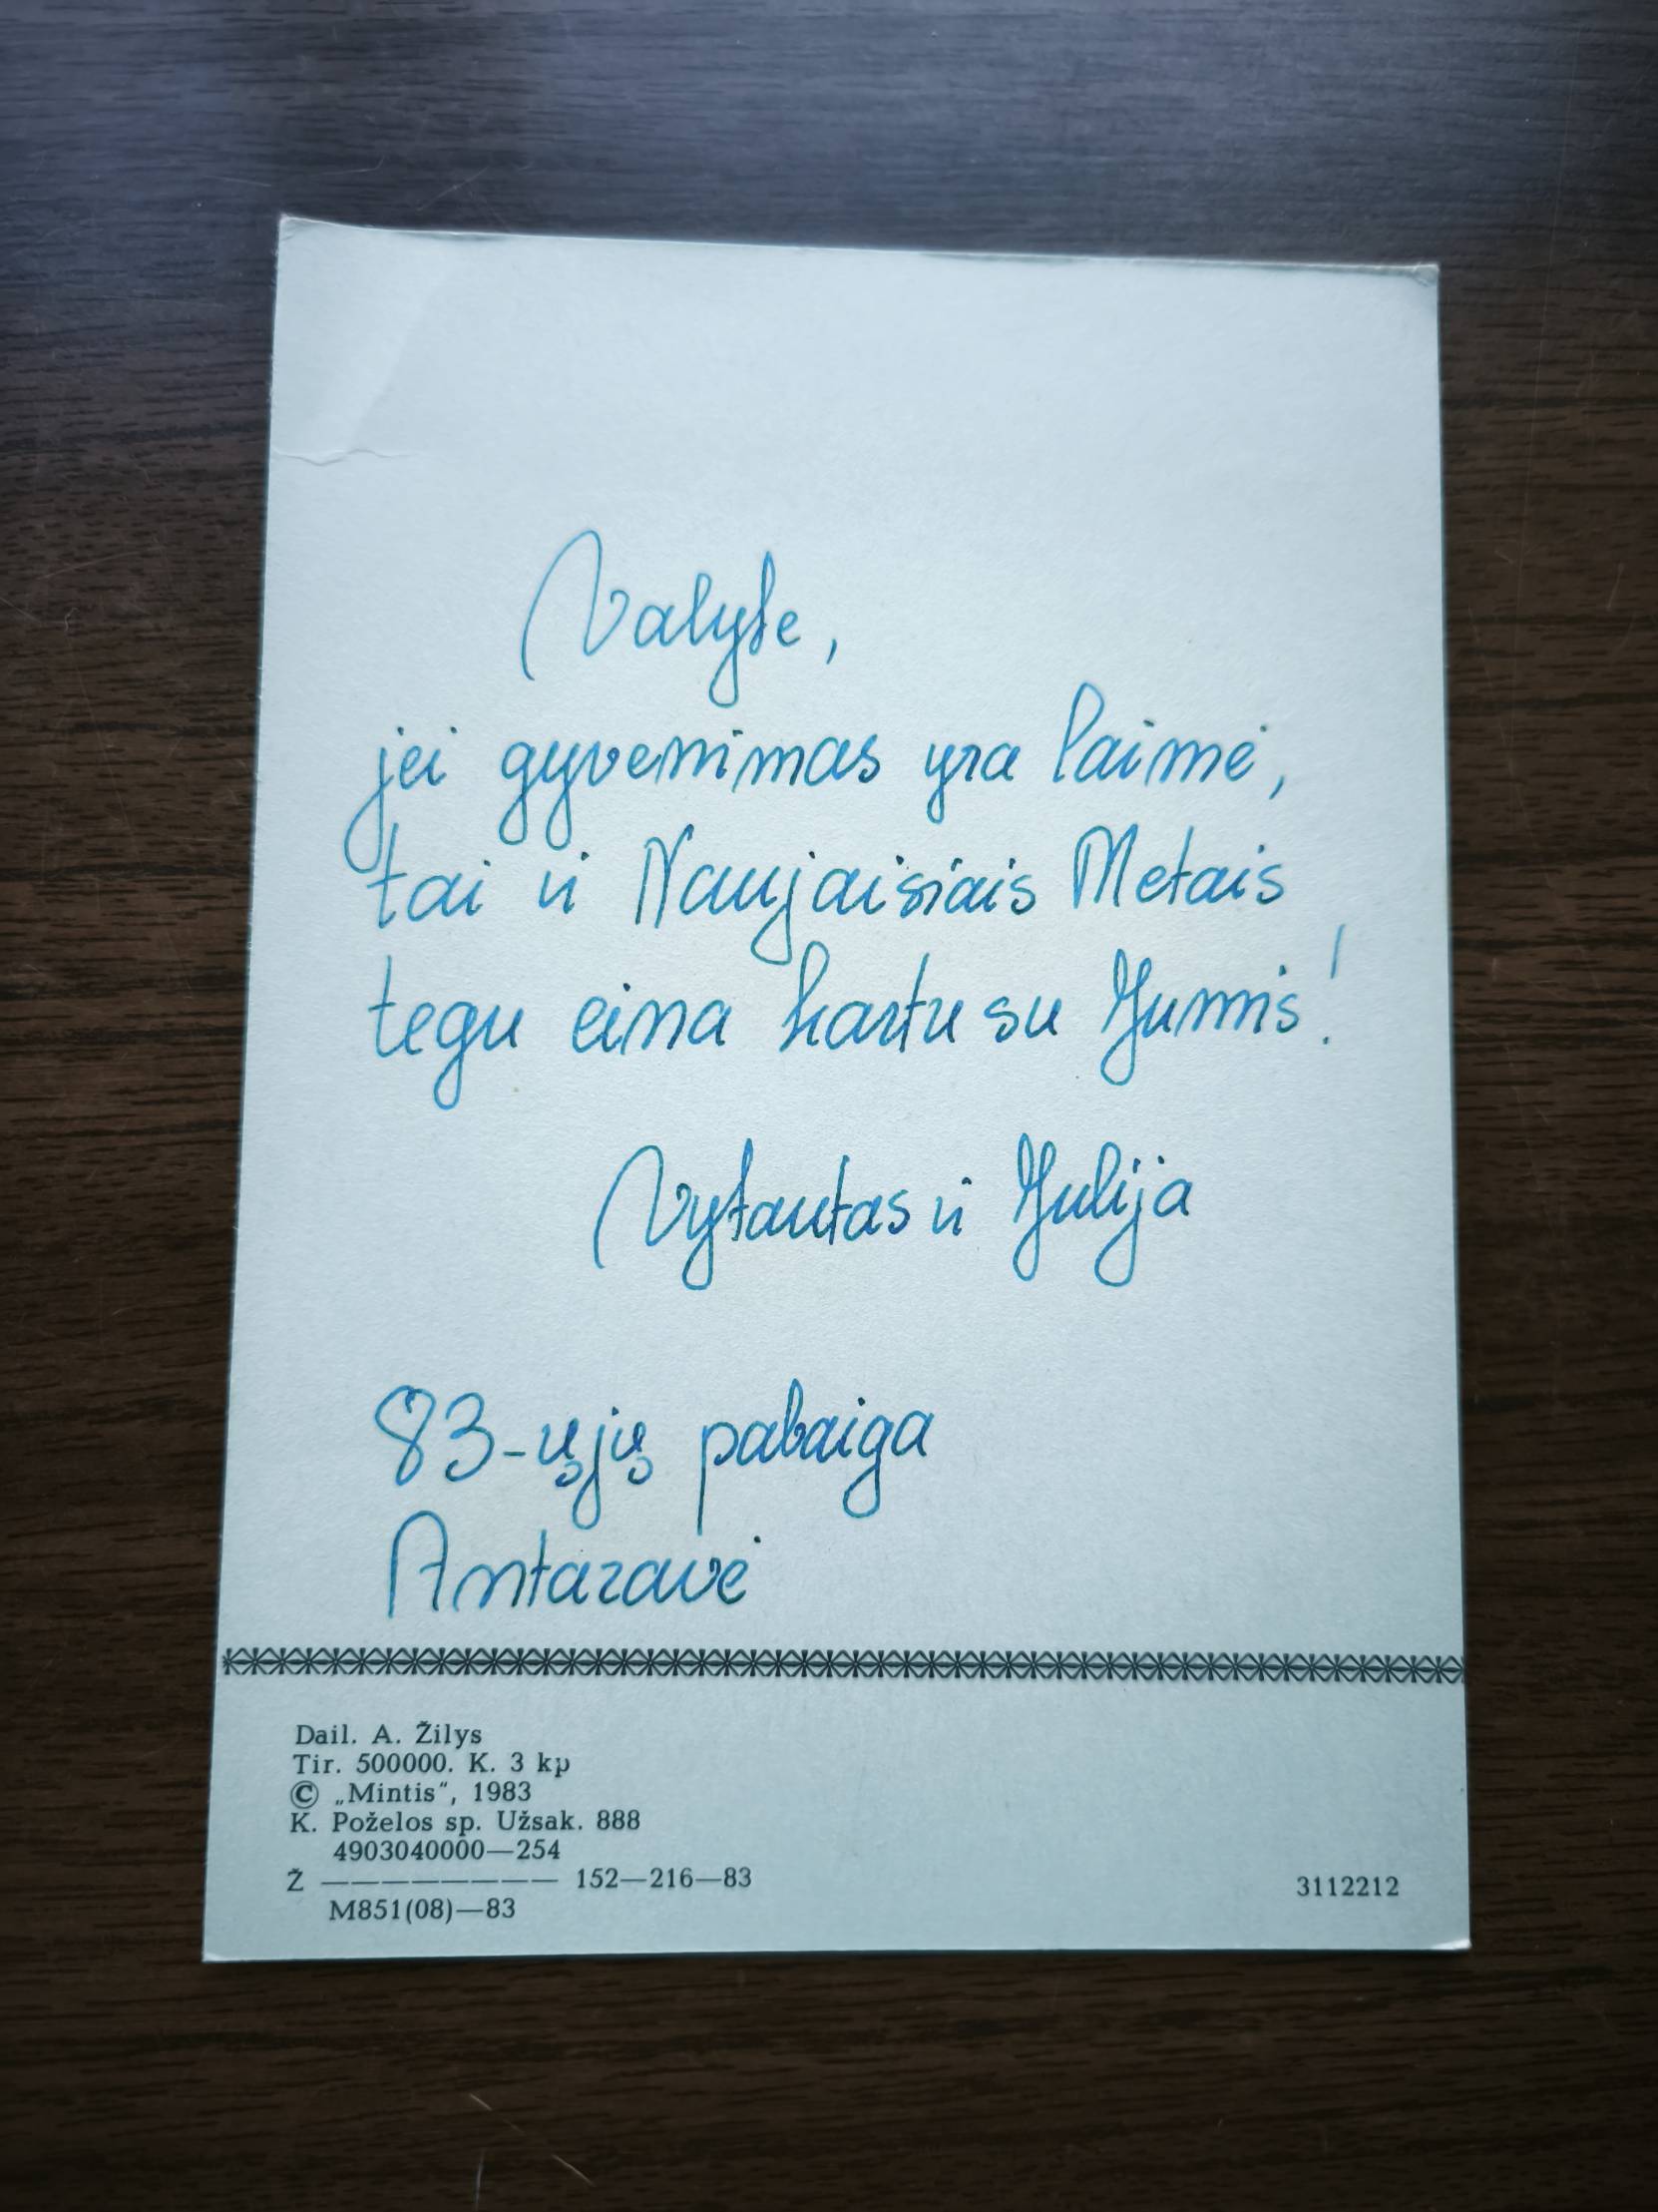 Valyte,
jei gyvenimas yra laimė,
tai ir Naujaisiais Metais
tegu eina kartu su Jumis!
Vytautas ir Julija
83-ųjų pabaiga
Antazavė
Dail. A. Žilys
Tir. 500000. K. 3 kp
© „Mintis“, 1983
K. Poželos sp. Užsak. 888
4903040000—254
Ž ———————— 152—216—83
M851(08)—83
3112212